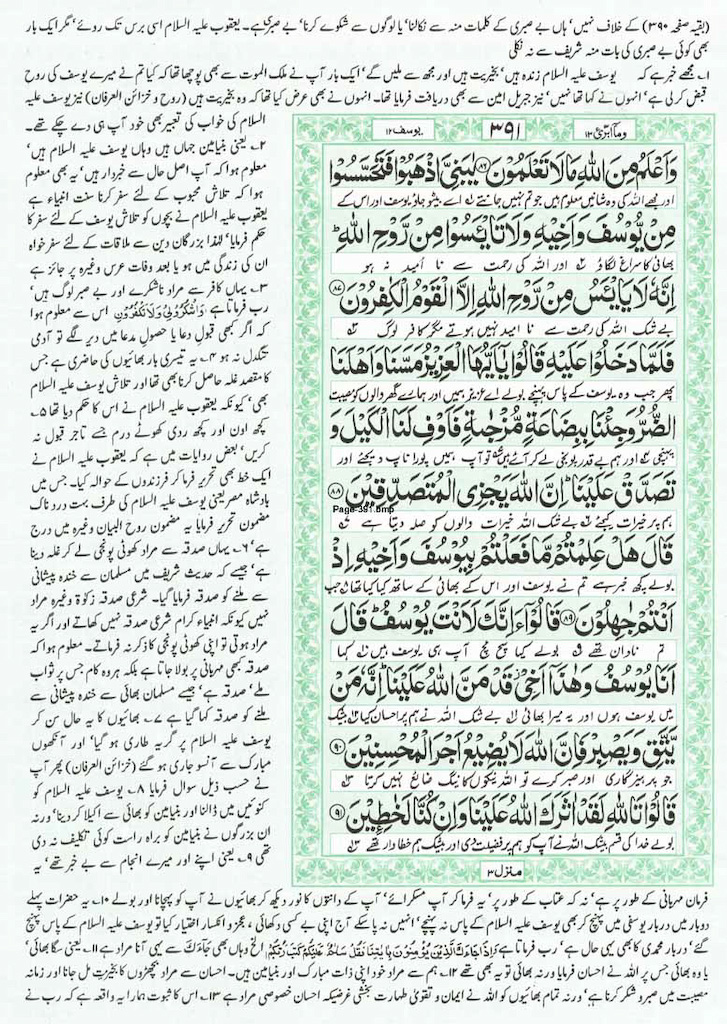 (بقیہ صفحہ ۳۹۰) کے خلاف نہیں' ہاں بے صبری کے کلمات منہ سے نکالنا' یا لوگوں سے شکوے کرنا' بے صبری ہے۔ یعقوب علیہ السلام اسی برس تک روئے' مگر ایک بار
بھی کوئی بے صبری کی بات منہ شریف سے نہ نکلی
۱۔ مجھے خبر ہے کہ یوسف علیہ السلام زندہ ہیں' بخیریت ہیں اور مجھ سے ملیں گے' ایک بار آپ نے ملک الموت سے بھی پوچھا تھا کہ کیا تم نے میرے یوسف کی روح
قبض کر لی ہے' انہوں نے کہا تھا نہیں' نیز جبریل امین سے بھی دریافت فرمایا تھا۔ انہوں نے بھی عرض کیا تھا کہ وہ بخیریت ہیں (روح و خزائن العرفان) نیز یوسف علیہ
السلام کی خواب کی تعبیر بھی خود آپ ہی دے چکے تھے۔
۲۔ یعنی بنیامین جہاں ہیں وہاں یوسف علیہ السلام ہیں'
معلوم ہوا کہ آپ اصل حال سے خبردار ہیں' یہ بھی معلوم
ہوا کہ تلاش محبوب کے لئے سفر کرنا سنت انبیاء ہے
یعقوب علیہ السلام نے بچوں کو تلاش یوسف کے لئے سفر کا
حکم فرمایا' لہٰذا بزرگان دین سے ملاقات کے لئے سفر خواہ
ان کی زندگی میں ہو یا بعد وفات عرس وغیرہ پر جائز ہے
۳۔ یہاں کافر سے مراد ناشکرے اور بے صبر لوگ ہیں'
رب فرماتا ہے وَاشْكُرُوْا لِيْ وَلَا تَكْفُرُوْنِ اس سے معلوم ہوا
کہ اگر کبھی قبول دعا یا حصول مدعا میں دیر لگے تو آدمی
تنگدل نہ ہو ۴۔ یہ تیسری بار بھائیوں کی حاضری ہے جس
کا مقصد غلہ حاصل کرنا بھی تھا اور تلاش یوسف علیہ السلام
بھی' کیونکہ یعقوب علیہ السلام نے اس کا حکم دیا تھا ۵۔
کچھ اون اور کچھ ردی کھوٹے درم جسے تاجر قبول نہ
کریں' بعض روایات میں ہے کہ یعقوب علیہ السلام نے
ایک خط بھی تحریر فرما کر فرزندوں کے حوالہ کیا۔ جس میں
بادشاہ مصر یعنی یوسف علیہ السلام کی طرف بہت درد ناک
مضمون تحریر فرمایا یہ مضمون روح البیان وغیرہ میں درج
ہے' ۶۔ یہاں صدقہ سے مراد کھوٹی پونجی لے کر غلہ دینا
ہے' جیسے کہ حدیث شریف میں مسلمان سے خندہ پیشانی
سے ملنے کو صدقہ فرمایا گیا۔ شرعی صدقہ زکوٰۃ وغیرہ مراد
نہیں کیونکہ انبیاء کرام شرعی صدقہ نہیں کھاتے اور اگر یہ
مراد ہوتی تو اپنی کھوٹی پونجی کا ذکر نہ فرماتے۔ معلوم ہوا کہ
صدقہ کبھی مہربانی پر بولا جاتا ہے بلکہ ہر وہ کام جس پر ثواب
ملے' صدقہ ہے' جیسے مسلمان بھائی سے خندہ پیشانی سے
ملنے کو صدقہ کہا گیا ہے ۷۔ بھائیوں کا یہ حال سن کر
یوسف علیہ السلام پر گریہ طاری ہو گیا' اور آنکھوں
مبارک سے آنسو جاری ہو گئے (خزائن العرفان) پھر آپ
نے حسب ذیل سوال فرمایا ۸۔ یوسف علیہ السلام کو
کنوئیں میں ڈالنا اور بنیامین کو بھائی سے اکیلا کر دینا' ورنہ
ان بزرگوں نے بنیامین کو براہ راست کوئی تکلیف نہ دی
تھی ۹۔ یعنی اپنے اور میرے انجام سے بے خبر تھے' یہ
وما ابرئ ۱۳
۳۹۱
یوسف ۱۲
وَاَعْلَمُ مِنَ اللّٰهِ مَا لَا تَعْلَمُوْنَ ﴿۸۶﴾ يٰبَنِيَّ اذْهَبُوْا فَتَحَسَّسُوْا
اور مجھے اللہ کی وہ شانیں معلوم ہیں جو تم نہیں جانتے ۱؎ اے بیٹو جاؤ یوسف اور اس کے
مِنْ يُّوْسُفَ وَاَخِيْهِ وَلَا تَايْـَٔسُوْا مِنْ رَّوْحِ اللّٰهِ ؕ
بھائی کا سراغ لگاؤ ۲؎ اور اللہ کی رحمت سے نا امید نہ ہو
اِنَّهٗ لَا يَايْـَٔسُ مِنْ رَّوْحِ اللّٰهِ اِلَّا الْقَوْمُ الْكٰفِرُوْنَ ﴿۸۷﴾
بے شک اللہ کی رحمت سے نا امید نہیں ہوتے مگر کافر لوگ ۳؎
فَلَمَّا دَخَلُوْا عَلَيْهِ قَالُوْا يٰۤاَيُّهَا الْعَزِيْزُ مَسَّنَا وَاَهْلَنَا
پھر جب وہ یوسف کے پاس پہنچے ۴؎ بولے اے عزیز ہمیں اور ہمارے گھر والوں کو مصیبت
الضُّرُّ وَجِئْنَا بِبِضَاعَةٍ مُّزْجٰىةٍ فَاَوْفِ لَنَا الْكَيْلَ وَ
پہنچی ۴؎ اور ہم بے قدر پونجی لے کر آئے ہیں ۵؎ تو آپ ہمیں پورا ناپ دیجئے اور
تَصَدَّقْ عَلَيْنَا ؕ اِنَّ اللّٰهَ يَجْزِي الْمُتَصَدِّقِيْنَ ﴿۸۸﴾
Page-391.bmp
ہم پر خیرات کیجئے ۶؎ بے شک اللہ خیرات والوں کو صلہ دیتا ہے ۷؎
قَالَ هَلْ عَلِمْتُمْ مَّا فَعَلْتُمْ بِيُوْسُفَ وَاَخِيْهِ اِذْ
بولے کچھ خبر ہے تم نے یوسف اور اس کے بھائی کے ساتھ کیا کیا تھا ۸؎ جب
اَنْتُمْ جٰهِلُوْنَ ﴿۸۹﴾ قَالُوْۤا ءَاِنَّكَ لَاَنْتَ يُوْسُفُ ؕ قَالَ
تم نادان تھے ۹؎ بولے کیا سچ مچ آپ ہی یوسف ہیں ۱۰؎ کہا
اَنَا يُوْسُفُ وَهٰذَاۤ اَخِيْ ؗ قَدْ مَنَّ اللّٰهُ عَلَيْنَا ؕ اِنَّهٗ مَنْ
میں یوسف ہوں اور یہ میرا بھائی ۱۱؎ بے شک اللہ نے ہم پر احسان کیا ۱۲؎ بیشک
يَّتَّقِ وَيَصْبِرْ فَاِنَّ اللّٰهَ لَا يُضِيْعُ اَجْرَ الْمُحْسِنِيْنَ ﴿۹۰﴾
جو پرہیزگاری اور صبر کرے تو اللہ نیکوں کا نیگ ضائع نہیں کرتا ۱۳؎
قَالُوْا تَاللّٰهِ لَقَدْ اٰثَرَكَ اللّٰهُ عَلَيْنَا وَاِنْ كُنَّا لَخٰطِـِٕيْنَ ﴿۹۱﴾
بولے خدا کی قسم بیشک اللہ نے آپ کو ہم پر فضیلت دی اور بیشک ہم خطاوار تھے
منزل ۳
فرمان مہربانی کے طور پر ہے' نہ کہ عتاب کے طور پر' یہ فرما کر آپ مسکرائے' آپ کے دانتوں کا نور دیکھ کر بھائیوں نے آپ کو پہچانا اور بولے ۱۰۔ یہ حضرات پہلے
دو بار میں دربار یوسفی میں پہنچ کر بھی یوسف علیہ السلام کے پاس نہ پہنچے' انہیں نہ پا سکے آج اپنی بے کسی دکھائی' عجز و انکسار اختیار کیا تو یوسف علیہ السلام کے پاس پہنچ
گئے' دربار محمدی کا بھی یہی حال ہے' رب فرماتا ہے وَاِذَا جَآءَكَ الَّذِيْنَ يُؤْمِنُوْنَ بِاٰيٰتِنَا فَقُلْ سَلٰمٌ عَلَيْكُمْ كَتَبَ رَبُّكُمْ الخ وہاں بھی جَآءَكَ سے یہی آنا مراد ہے ۱۱۔ یعنی سگا بھائی'
یا وہ بھائی جس پر اللہ نے احسان فرمایا ورنہ بھائی تو یہ بھی تھے ۱۲۔ ہم سے مراد خود اپنی ذات مبارک اور بنیامین ہیں۔ احسان سے مراد بچھڑوں کا بخیریت مل جانا اور زمانہ
مصیبت میں صبر و شکر کرنا ہے' ورنہ تمام بھائیوں کو اللہ نے ایمان و تقویٰ طہارت بخشی غرضیکہ احسان خصوصی مراد ہے ۱۳۔ اس کا ثبوت ہمارا یہ واقعہ ہے کہ رب نے